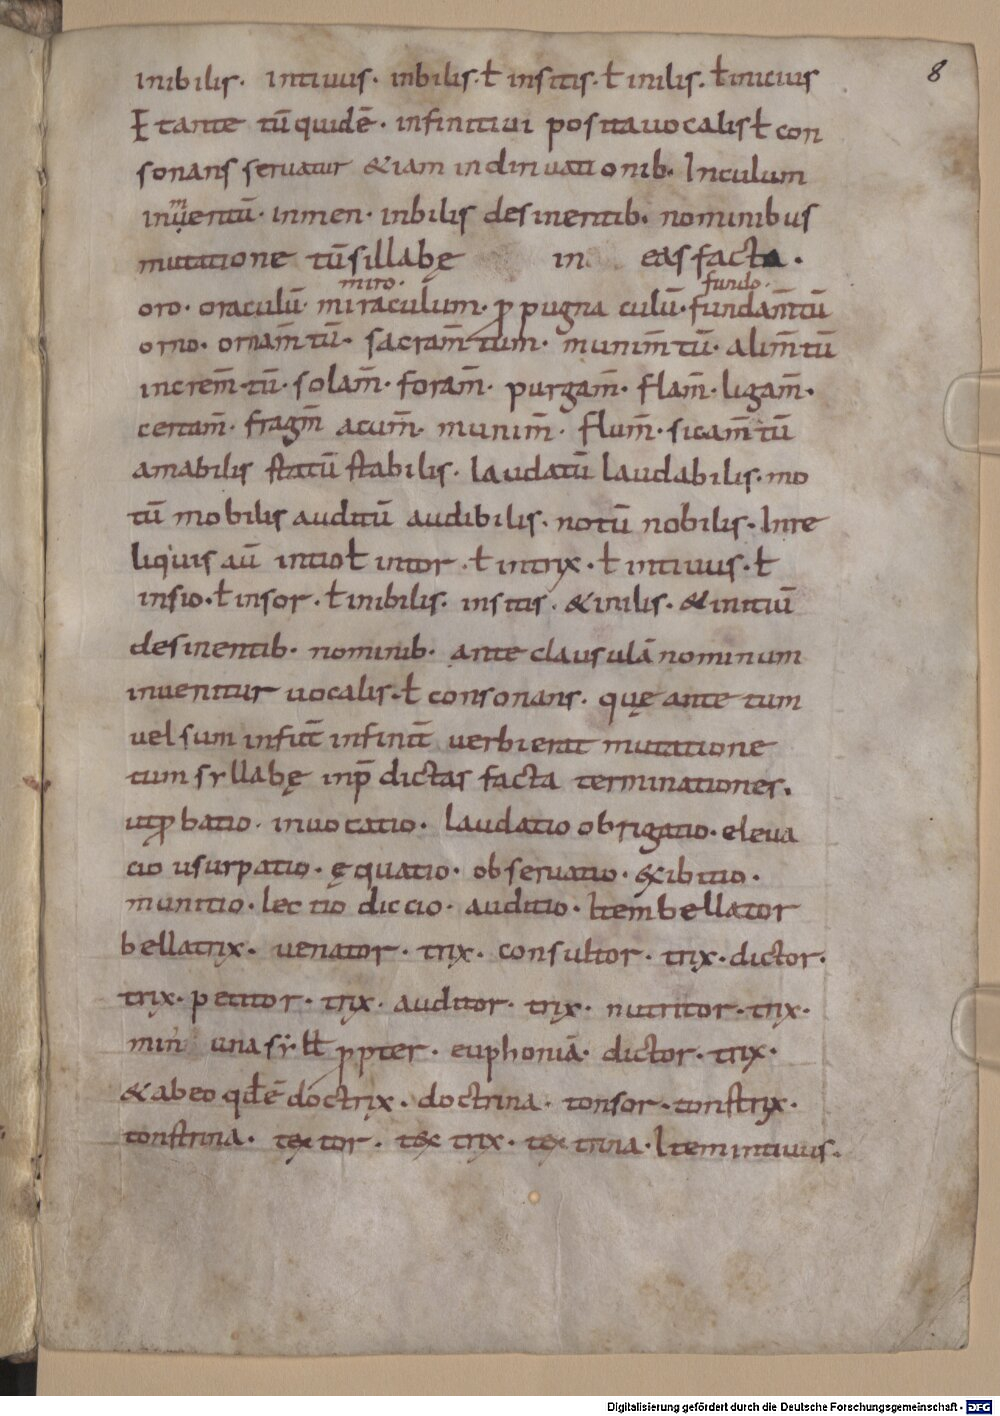 8
inibilis· intiuus· inbilis·ł insitis·ł inilis·ł inicius
Et ante tū quidē· infinitiui posita uocalis ł con
sonans seruatur &iam in diriuationib· In culum
in uentū· in men· in bilis desinentib· nominibus
mutatione tū sillabę in eas facta·
miro· fundo·
oro· oraculū· miraculum· ꝓpugnaculū· fundam̄tū
orno· ornam̄tū· sacram̄tum· munim̄tū· alim̄tū
increm̄·tū· solam̄· foram̄· purgam̄· flam̄· ligam̄·
certam̄· fragm̄ acum̄· munim̄· flum̄· sicam̄tū
amabilis statū stabilis· laudatū laudabilis· mo
tū mobilis auditū audibilis· notū nobilis· In re
liquis aū in tio ł in tor· ł in trix· ł in tiuus· ł
in sio· ł in sor· ł inibilis· in sitis· & inilis· & in itiū
desinentib· nominib· ante clausulā nominum
inuenitur uocalis· ł consonans· quę ante tum
uel sum in fut̄ infinit̄ uerbi erat mutatione
tum syllabę in p̄dictas facta terminationes·
ut ꝓbatio· inuocatio· laudatio obrigatio· eleua
cio usurpatio· ęquatio· obseruatio· &xibitio·
munitio· lectio diccio· auditio· Item bellator
bellatrix· uenator· trix· consultor· trix· dictor·
trix· petitor· trix· auditor· trix· nutritor· trix·
min una syłł ꝓpter· euphoniā· dictor· trix·
& ab eo qđē doctrix· doctrina· tonsor· tonstrix·
tonstrina· textor· tex trix· tex trina· Item in tiuus·
Digitalisierung gefördert durch die Deutsche Forschungsgemeinschaft - DFG